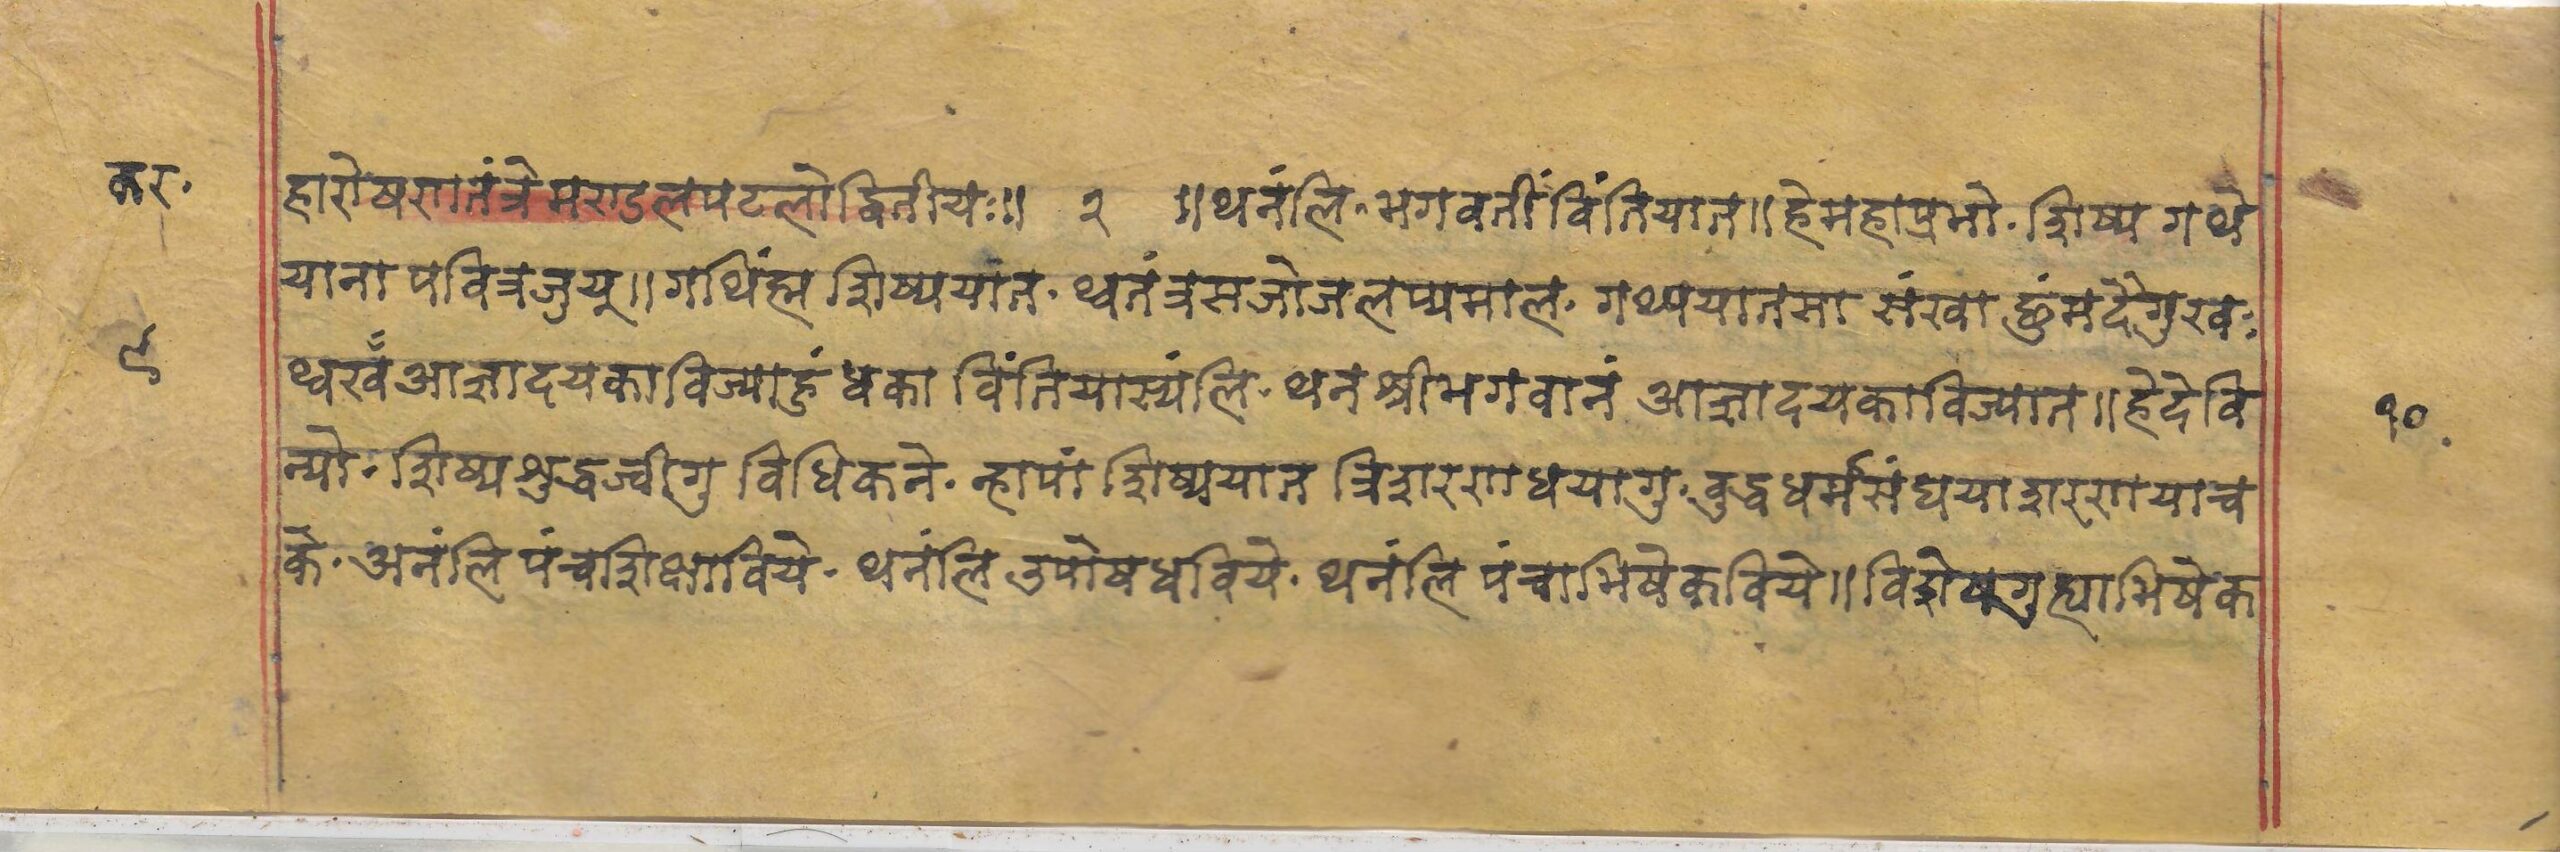 कर.
हारोषणतंत्रे मण्डलपटलोद्वितीयः॥ २ ॥थनंलि.भगवतीं विंतियात॥हेमहाप्रभो.शिष्य गथे
याना पवित्रजुयू॥गथिंह्म शिष्ययात.थ्वतंत्रस जोजलप्यमाल.गथ्ययातसा संखा छुंमदैगुखवः
९
थ्वखँ आज्ञादयकाविज्याहुं धका विंतियास्यंलि.थन श्रीभगवानं आज्ञादयकाविज्यात॥हेदेवि
१०.
न्यो.शिष्यशुद्धज्वीगु विधिकने.न्हापां शिष्ययात त्रिशरणधयागु.बुद्धधर्मसंघयाशरणयाच
के.अनंलि पंचशिक्षाविये.थनंलि उपोषधविये.थनंलि पंचाभिषेकविये॥विशेषगुह्याभिषेक